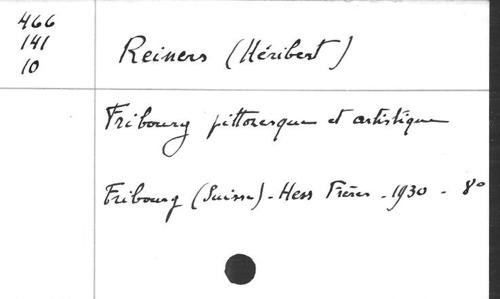 466
141
10
Reiners (Héribert)
Fribourg pittoresque et artistique
Fribourg (Suisse) - Hess Frères - 1930 - 8°